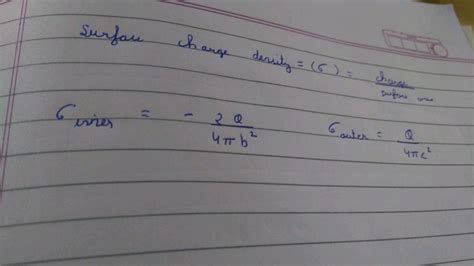 Surface charge density = (σ) = charge / surface area
σ inner = - 2Q / 4πb² σ outer = Q / 4πc²